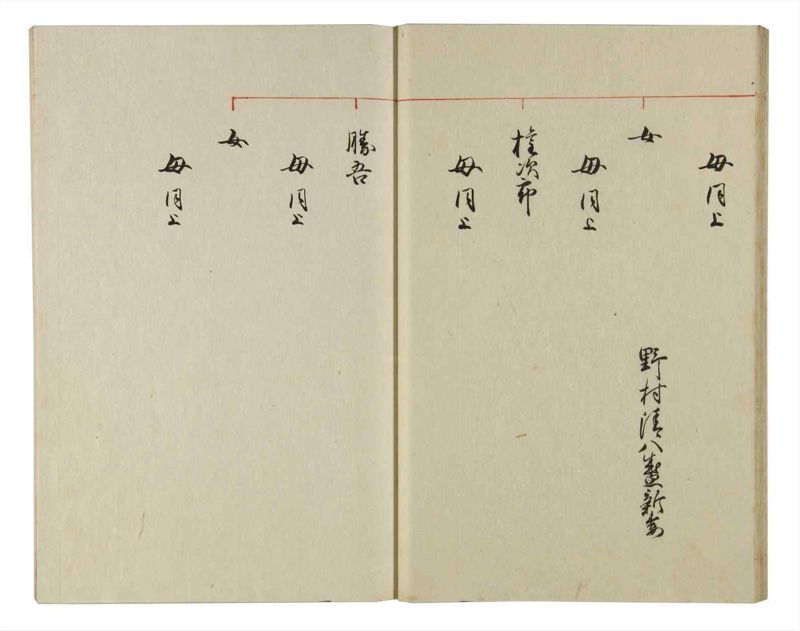 母同上
女
野村清八
母同上
権次郎
母同上
勝吾
母同上
女
母同上